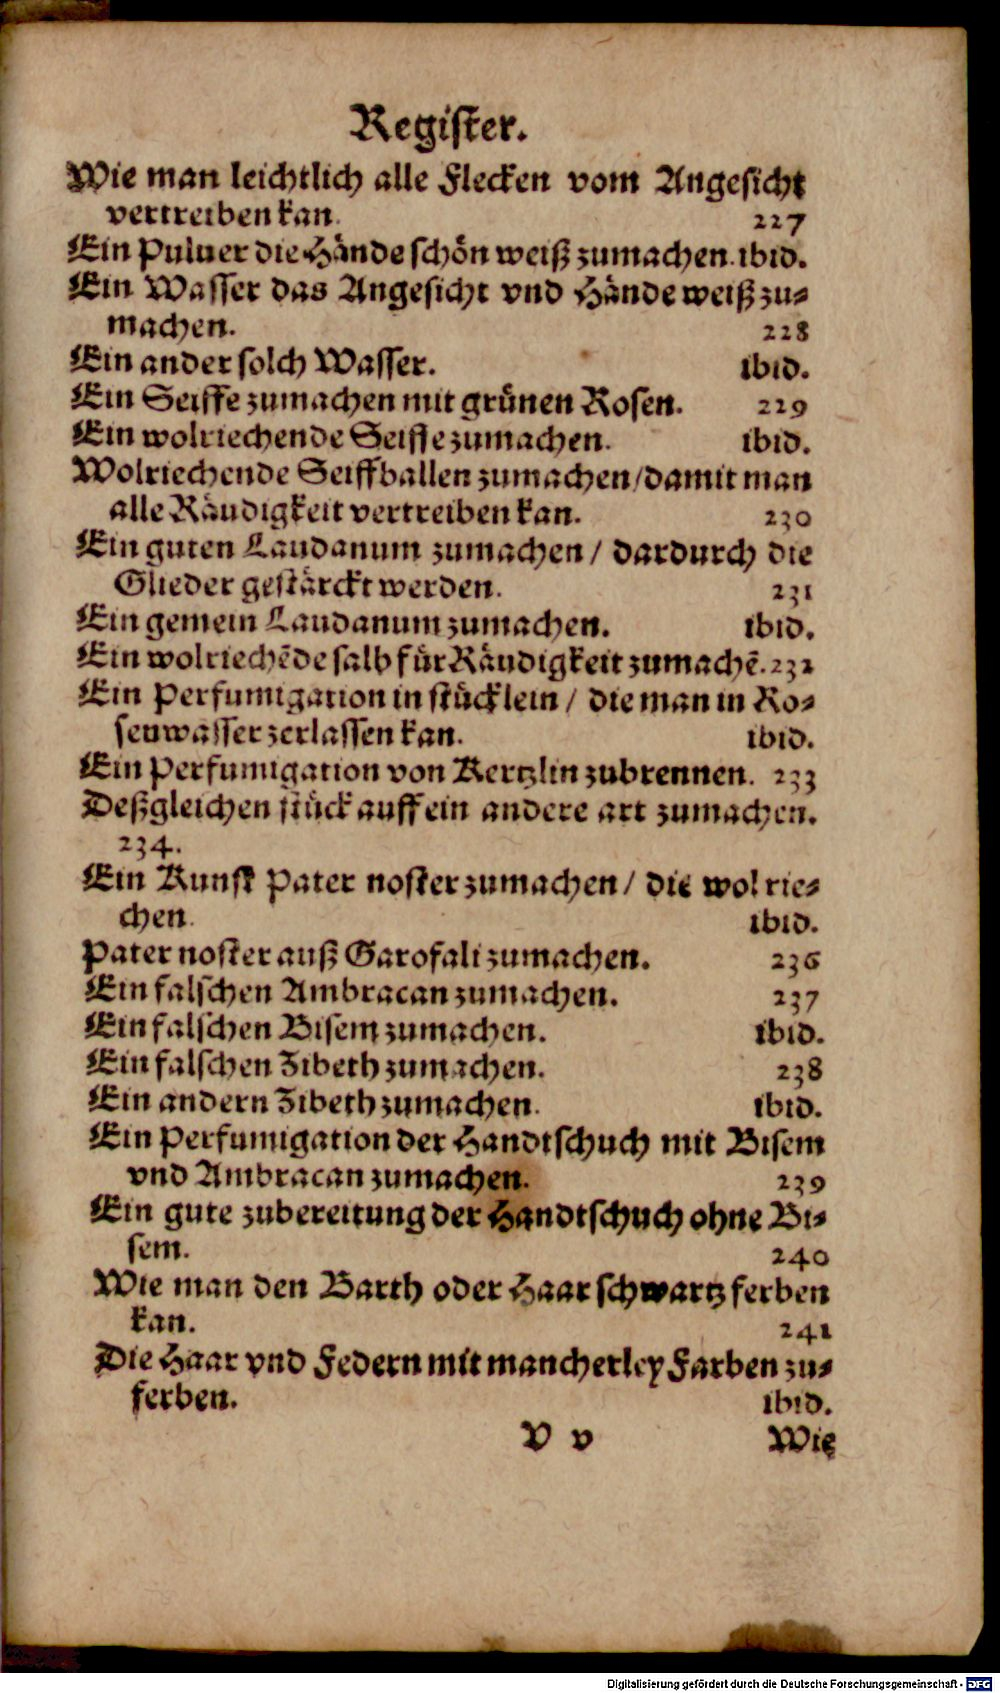 Register.
Wie man leichtlich alle Flecken vom Angesicht
vertreiben kan. 227
Ein Puluer die Hände schön weiß zumachen. ibid.
Ein Wasser das Angesicht vnd Hände weiß zu-
machen. 228
Ein ander solch Wasser. ibid.
Ein Seiffe zumachen mit grünen Rosen. 229
Ein wolriechende Seiffe zumachen. ibid.
Wolriechende Seiffballen zumachen/damit man
alle Räudigkeit vertreiben kan. 230
Ein guten Laudanum zumachen / dardurch die
Glieder gestärckt werden. 231
Ein gemein Laudanum zumachen. ibid.
Ein wolriechēde salb für Räudigkeit zumachē. 232
Ein Perfumigation in stücklein / die man in Ro-
senwasser zerlassen kan. ibid.
Ein Perfumigation von Kertzlin zubrennen. 233
Deßgleichen stück auff ein andere art zumachen.
234.
Ein Kunst Pater noster zumachen / die wol rie-
chen. ibid.
Pater noster auß Garofali zumachen. 236
Ein falschen Ambracan zumachen. 237
Ein falschen Bisem zumachen. ibid.
Ein falschen Zibeth zumachen. 238
Ein andern Zibeth zumachen. ibid.
Ein Perfumigation der Handtschuch mit Bisem
vnd Ambracan zumachen. 239
Ein gute zubereitung der Handtschuch ohne Bi-
sem. 240
Wie man den Barth oder Haar schwartz ferben
kan. 241
Die Haar vnd Federn mit mancherley Farben zu-
ferben. ibid.
V v Wie
Digitalisierung gefördert durch die Deutsche Forschungsgemeinschaft - DFG